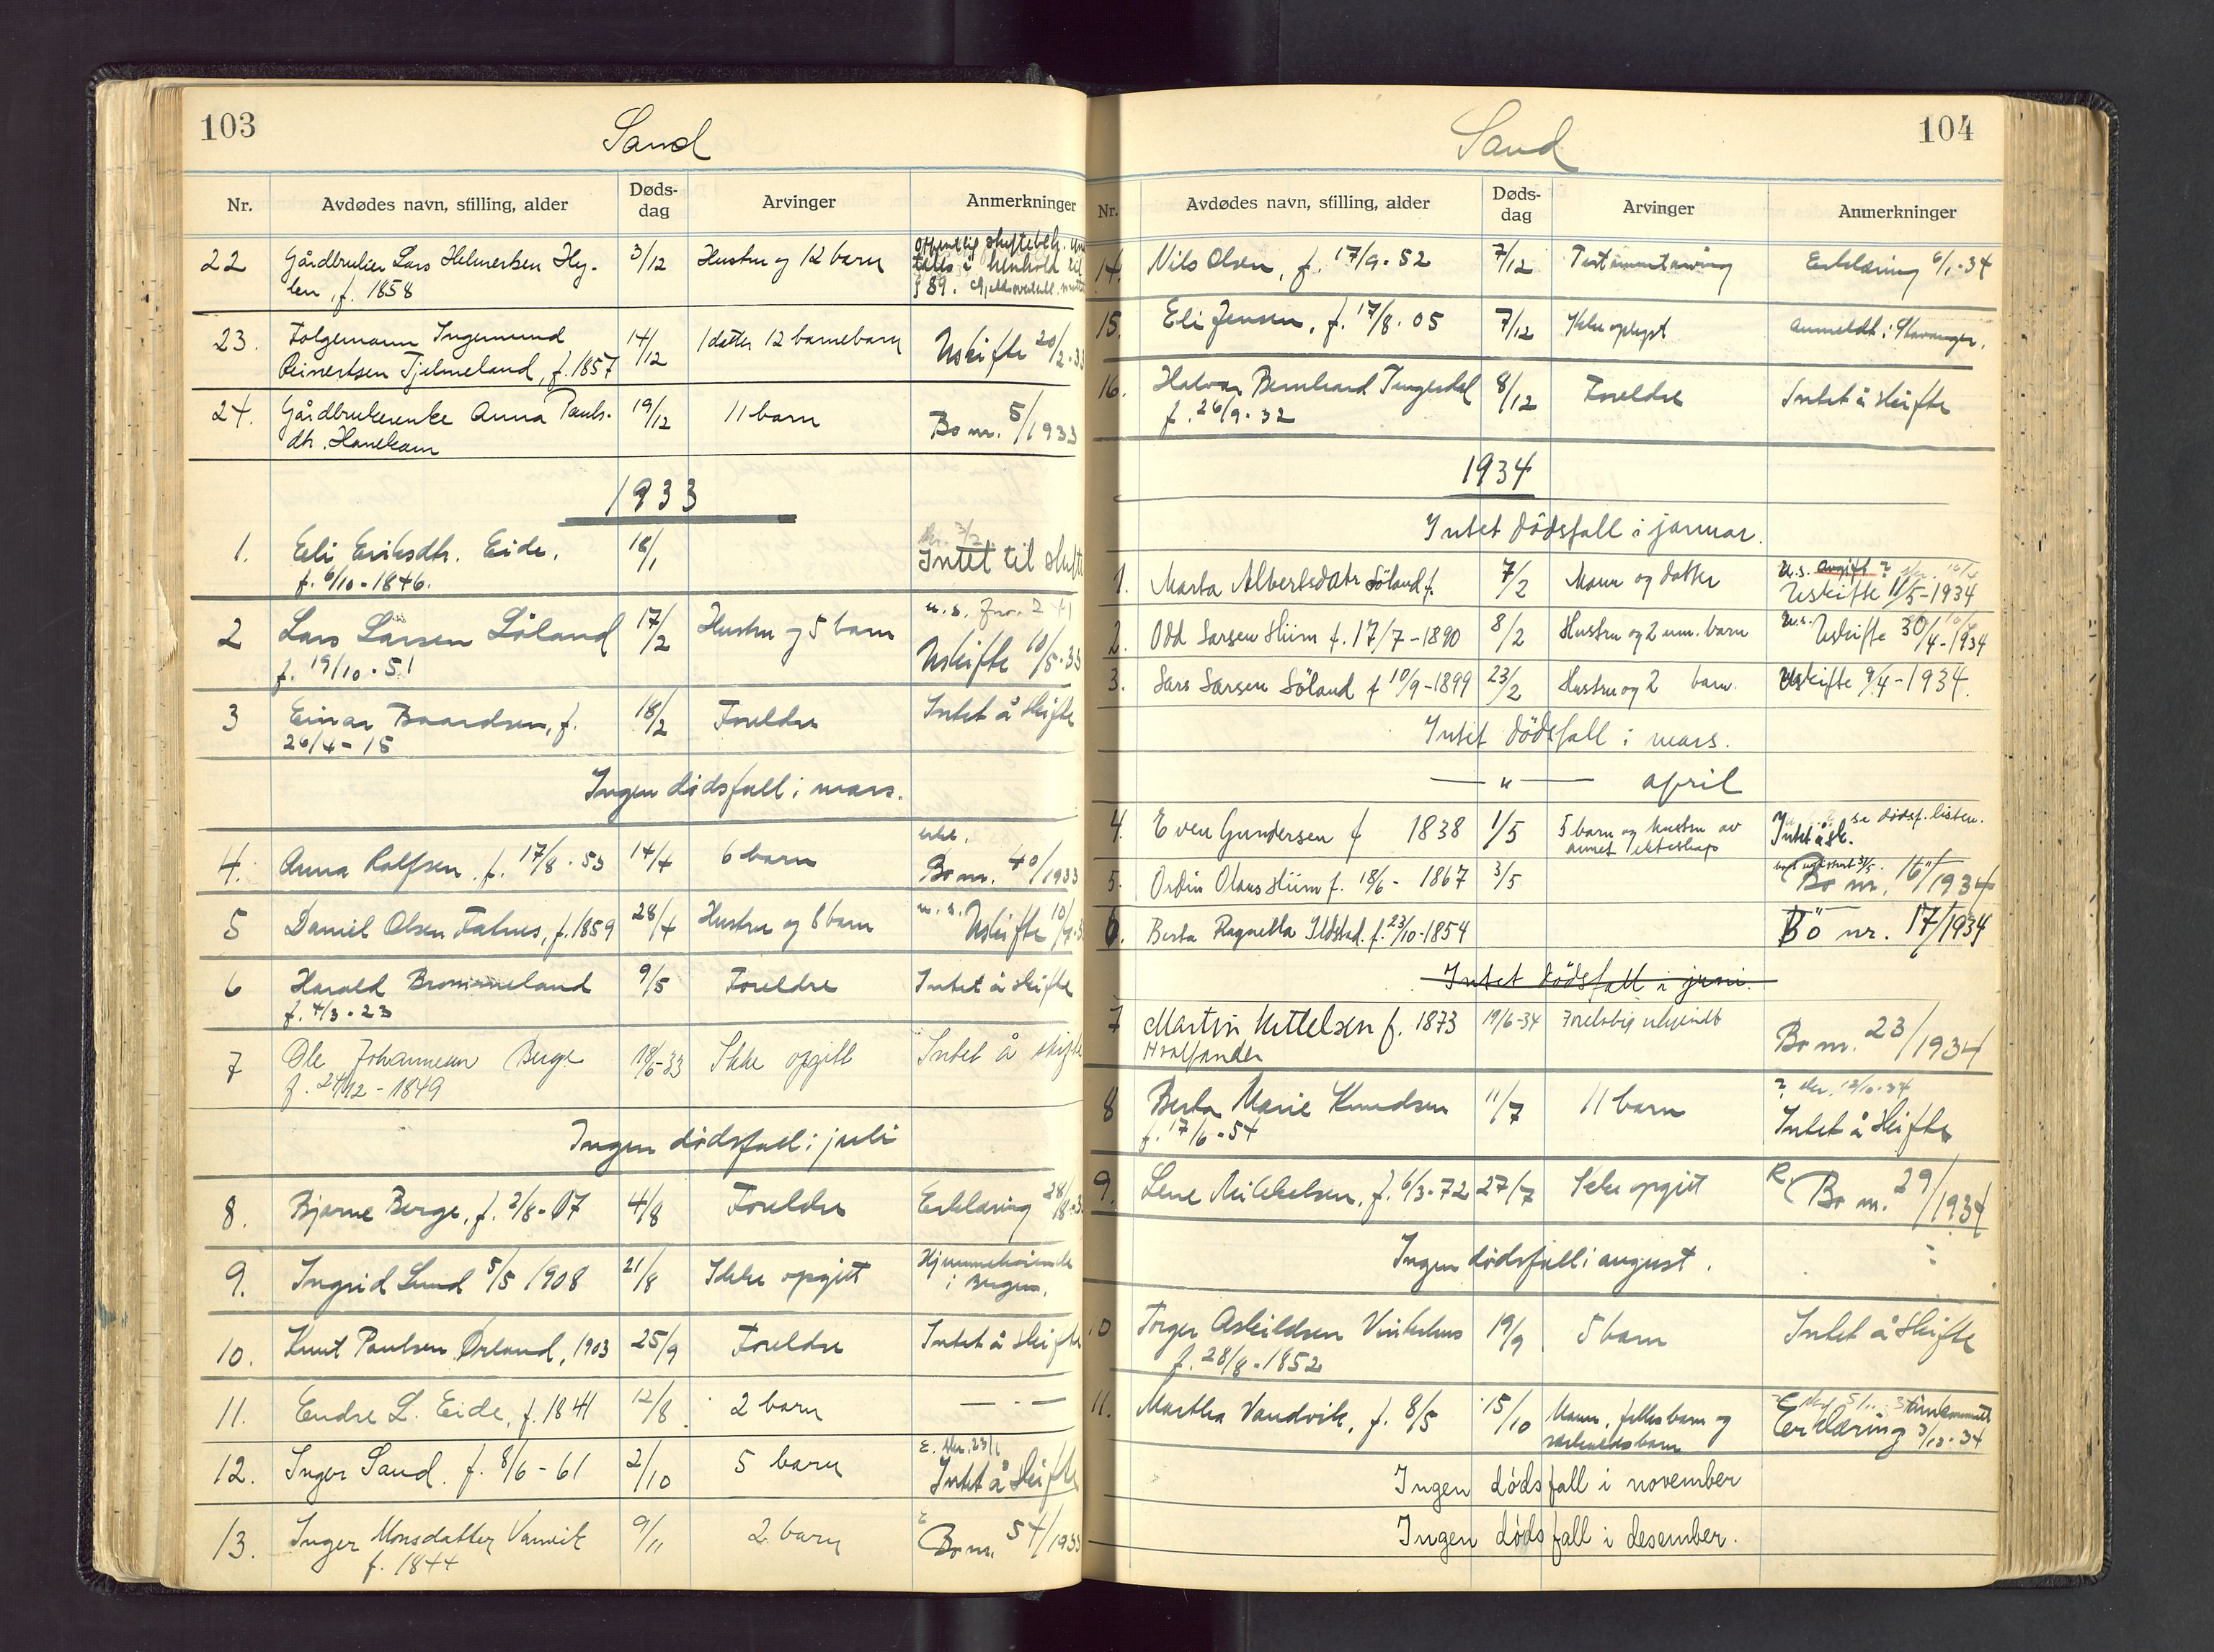 103
Sand
Nr. Avdødes navn, stilling, alder Døds-dag Arvinger Anmerkninger
22 Gårdbruker Lars Helmerksen Hy- 3/12 Hustru og 12 barn
len, f. 1858
i henhold til
§ 89.
23. Folgemann Ingemund 14/12 1 datter 12 barnebarn Uskifte 20/2-33
Reinertsen Tjelmeland, f. 1857
24. Gårdbrukerenke Anna Pauls- 19/12 11 barn Bo nr. 5/1933
dtr. Hanekam
1933
1. Eli Eriksdtr. Eide, 18/1 Intet til skifte
f. 6/10-1846.
2 Lars Larsen Løland 17/2 Hustru og 5 barn u.s.
f. 19/10.51 Uskifte 10/5-33
3 Einar Baardsen, f. 18/2 Foreldre Intet å skifte
26/4-15
Ingen dødsfall i mars.
4. Anna Rolfsen, f. 17/8.53 14/4 6 barn Bo nr. 40/1933
5 Daniel Olsen Fatnes, f. 1859 28/4 Hustru og 8 barn u.s. Uskifte
6 Harald Brommeland 9/5 Foreldre Intet å skifte
f. 4/3.23
7 Ole Johannesen Berge 18/6-33 Ikke opgitt Intet å skifte
f. 24/12-1849
Ingen dødsfall i juli
8. Bjarne Berge, f. 2/8-07 4/8 Foreldre Erklæring
9. Ingrid Lund 5/5 1908 21/8 Ikke opgitt Hjemmehørende
i Bergen.
10. Knut Paulsen Ørland, 1903 25/9 Foreldre Intet å skifte
11. Endre L. Eide, f. 1841 12/8 2 barn — " —
12. Inger Sand. f. 8/6-61 2/10 5 barn Intet å skifte
13. Inger Monsdatter Vanvik 9/11 2 barn Bo nr. 54/1933
f. 1844
104
Sand
Nr. Avdødes navn, stilling, alder Døds-dag Arvinger Anmerkninger
14. Nils Olsen, f. 17/9.52 7/12 Testamentarving Erklæring 6/1-34
15. Eli Jensen, f. 17/8.05 7/12 Ikke oplyst Anmeldt i Stavanger.
16. Halvor Bernhard Tengesdal 8/12 Foreldre Intet å skifte
f. 26/9.32
1934
Intet dødsfall i januar.
1. Marta Albertsdatr Løland f. 7/2 Mann og datter u.s. avgift ?
Uskifte 11/5-1934
2. Odd Larsen Hiim f. 17/7-1890 8/2 Hustru og 2 um. barn u.s. Uskifte 30/4-1934
3. Lars Larsen Løland f 10/9-1899 23/2 Hustru og 2 barn. Uskifte 9/4-1934.
Intet dødsfall i mars.
— " — april
4. Even Gundersen f 1838 1/5 5 barn og hustru av se dødsf.listen.
annet ekteskap Intet å sk.
5. Ordin Olaus Hiim f. 18/6- 1867 3/5 Bo nr. 16/1934
6. Berta Ragnella Ildstad. f. 23/10-1854 Bo nr. 17/1934
Intet dødsfall i juni.
7 Martin Kittelsen f. 1873 19/6-34 Foreløbig ukjendt Bo nr. 23/1934
Hvalfanger
8 Berta Marie Knudsen 11/7 11 barn ? skr. 12/10-34
f. 17/6-54 Intet å skifte
9. Lene Mikkelsen, f. 6/3-72 27/7 Ikke opgitt Bo nr. 29/1934
Ingen dødsfall i august.
10 Torger Askildsen Vinterhus 19/9 5 barn Intet å skifte
f. 28/8-1852
11. Martha Vandvik, f. 8/5 15/10 Mann, felles barn og
særkullsbarn Erklæring 3/12-34
Ingen dødsfall i november
Ingen dødsfall i desember.